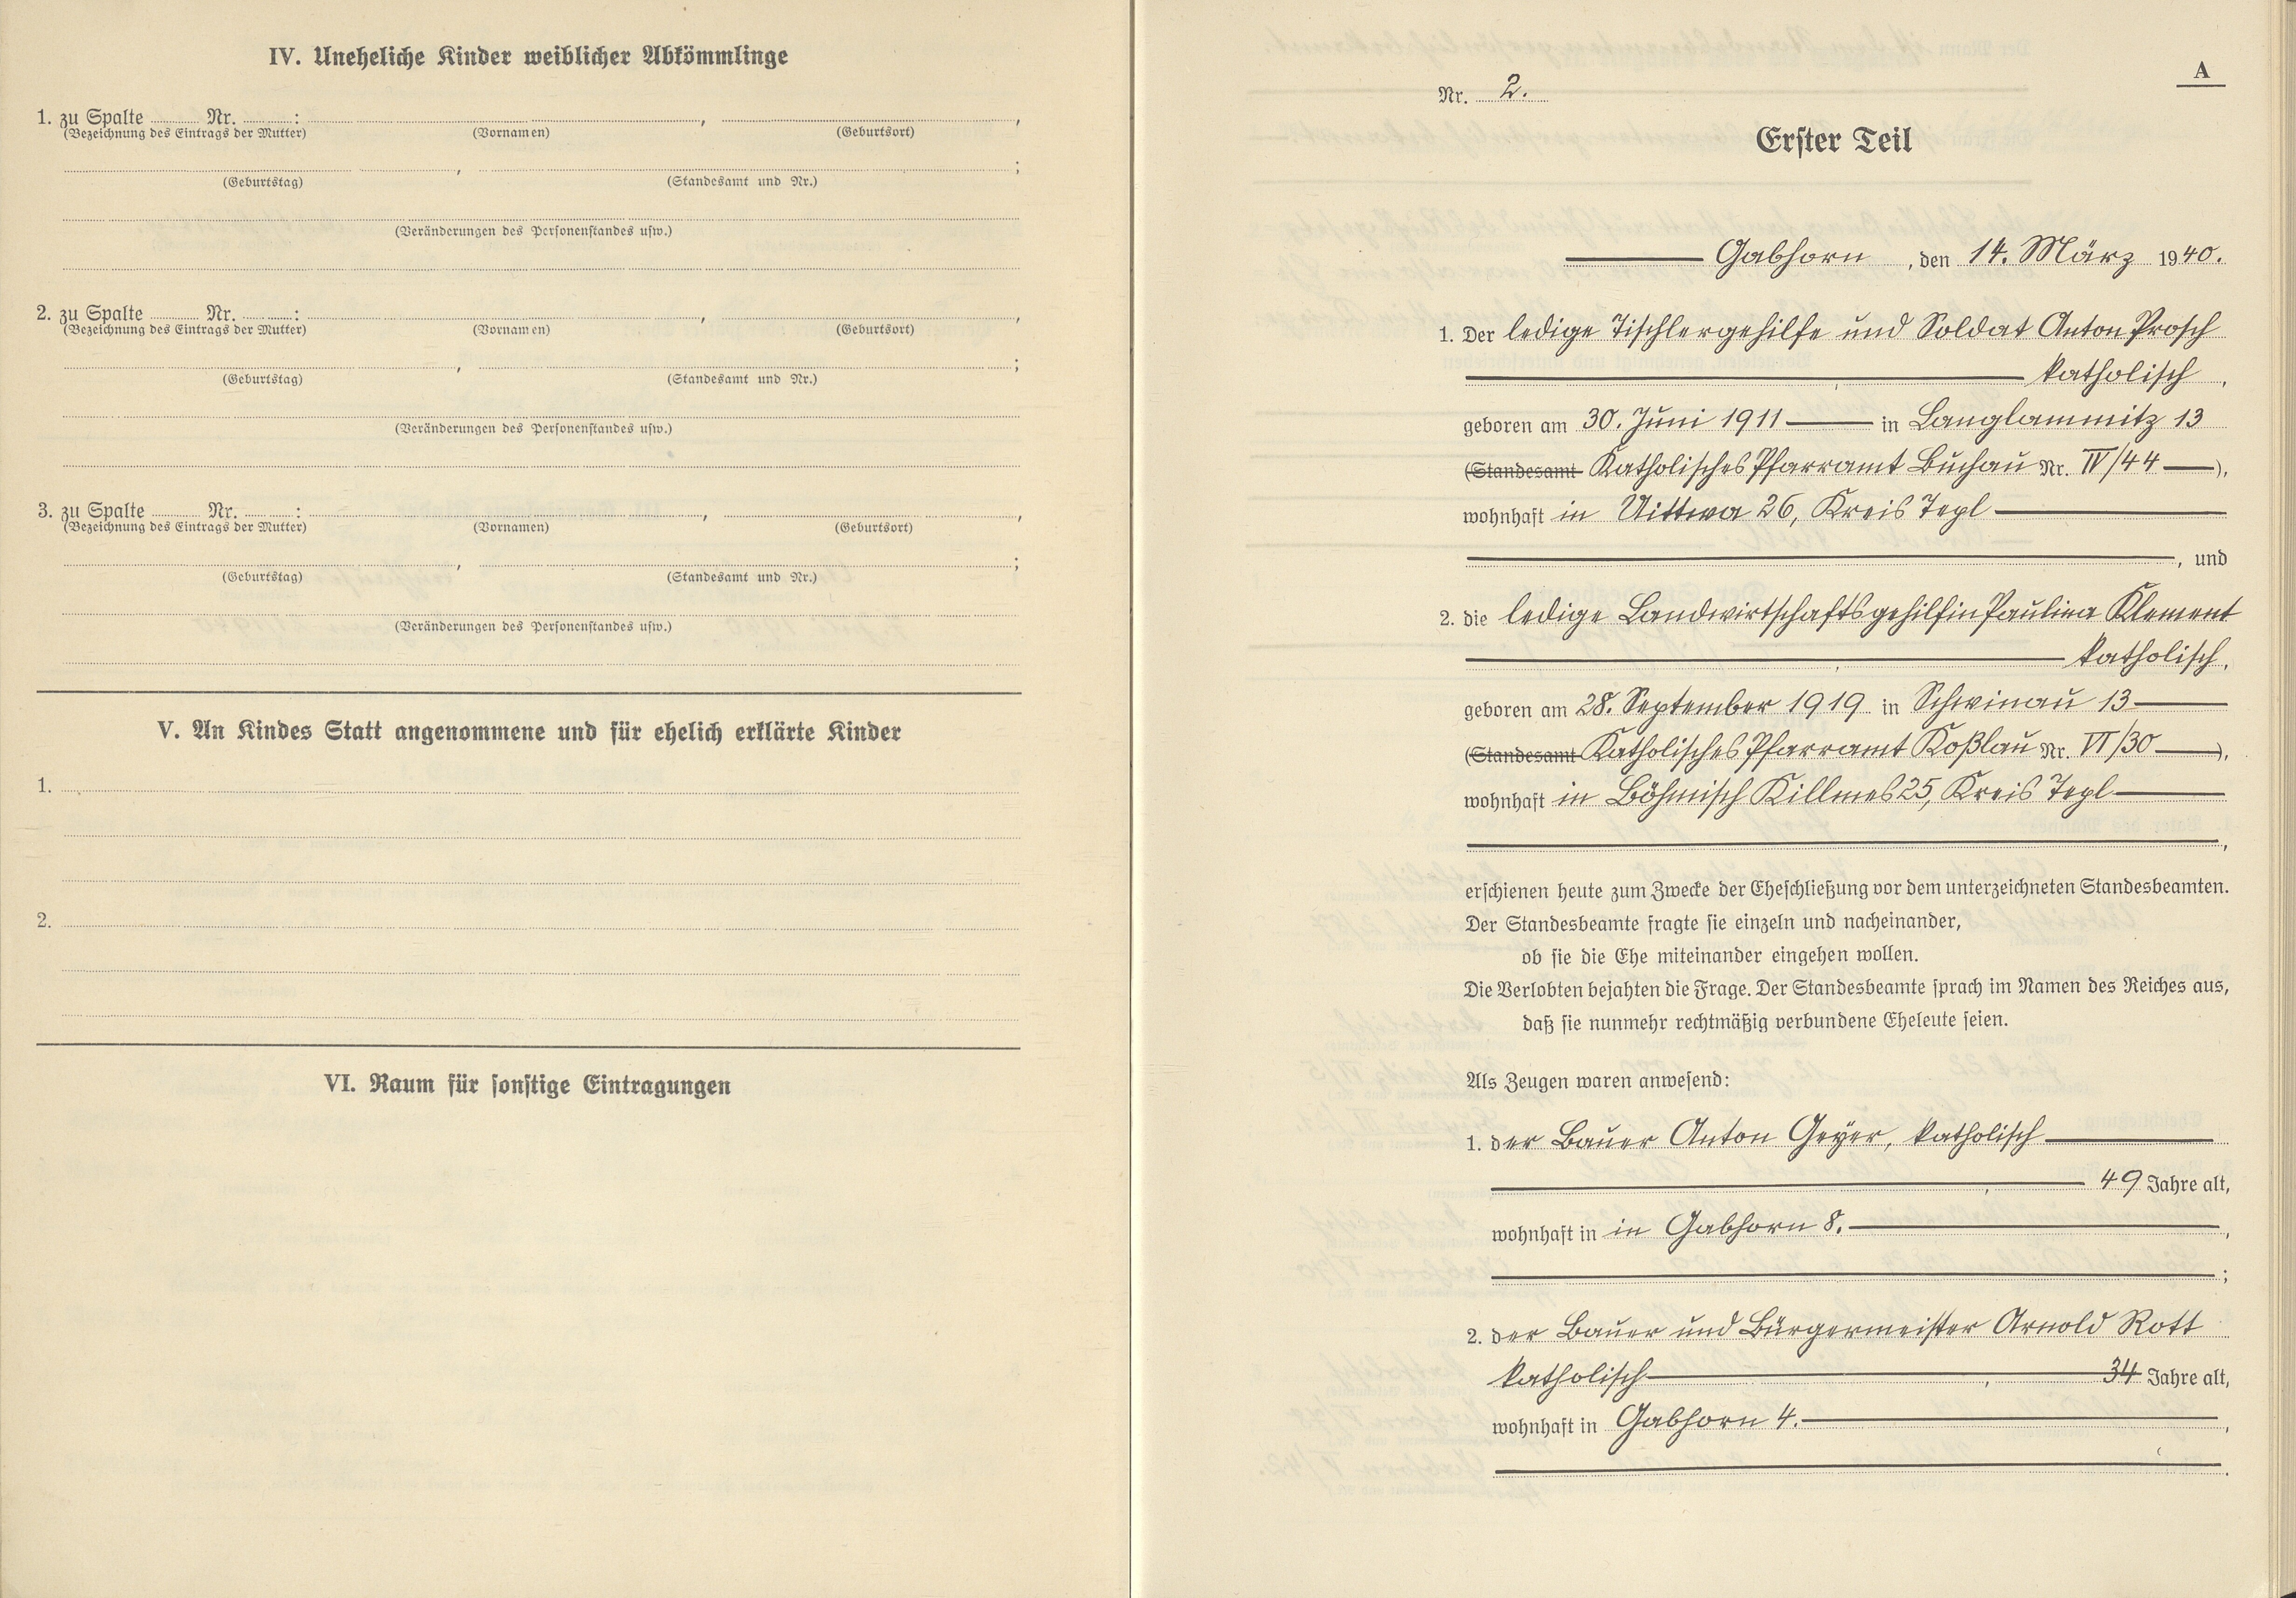 IV. Uneheliche Kinder weiblicher Abkömmlinge
1. zu Spalte ........ Nr. ........ : ........ , ........ ,
(Bezeichnung des Eintrags der Mutter) (Vornamen) (Geburtsort)
........ , ........ ;
(Geburtstag) (Standesamt und Nr.)
(Veränderungen des Personenstandes usw.)
2. zu Spalte ........ Nr. ........ : ........ , ........ ,
(Bezeichnung des Eintrags der Mutter) (Vornamen) (Geburtsort)
........ , ........ ;
(Geburtstag) (Standesamt und Nr.)
(Veränderungen des Personenstandes usw.)
3. zu Spalte ........ Nr. ........ : ........ , ........ ,
(Bezeichnung des Eintrags der Mutter) (Vornamen) (Geburtsort)
........ , ........ ;
(Geburtstag) (Standesamt und Nr.)
(Veränderungen des Personenstandes usw.)
V. An Kindes Statt angenommene und für ehelich erklärte Kinder
1.
2.
VI. Raum für sonstige Eintragungen
A
Nr. 2.
Erster Teil
Gabhorn, den 14. März 1940.
1. Der ledige Tischlergehilfe und Soldat Anton Prosch
katholisch,
geboren am 30. Juni 1911 in Langlammitz 13
(Standesamt Katholisches Pfarramt Buchau Nr. IV/44),
wohnhaft in Uittwa 26, Kreis Tepl
, und
2. die ledige Landwirtschaftsgehilfin Paulina Klement
katholisch,
geboren am 28. September 1919 in Schwinau 13
(Standesamt Katholisches Pfarramt Koßlau Nr. VI/30),
wohnhaft in Böhmisch Killmes 25, Kreis Tepl
,
erschienen heute zum Zwecke der Eheschließung vor dem unterzeichneten Standesbeamten.
Der Standesbeamte fragte sie einzeln und nacheinander,
ob sie die Ehe miteinander eingehen wollen.
Die Verlobten bejahten die Frage. Der Standesbeamte sprach im Namen des Reiches aus,
daß sie nunmehr rechtmäßig verbundene Eheleute seien.
Als Zeugen waren anwesend:
1. der Bauer Anton Geyer, katholisch
, 49 Jahre alt,
wohnhaft in in Gabhorn 8.,
;
2. der Bauer und Bürgermeister Arnold Rott
katholisch, 34 Jahre alt,
wohnhaft in Gabhorn 4.,
.